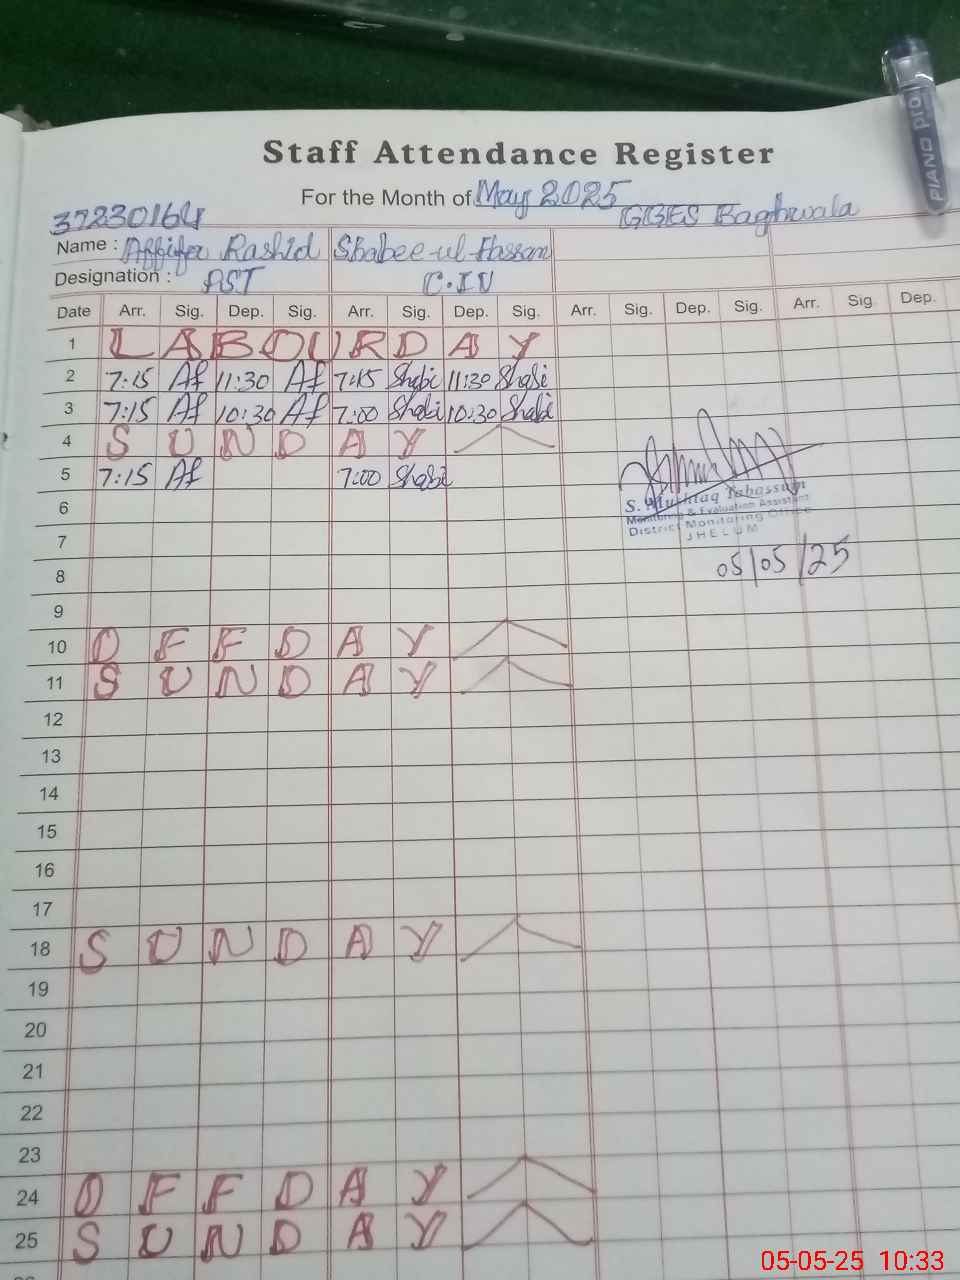 PIANO pro
Staff Attendance Register
For the Month of May 2025
37230164 GGES Baghwala
Name : Affifa Rashid Shabee-ul-Hassan
Designation : AST C.IV
Date Arr. Sig. Dep. Sig. Arr. Sig. Dep. Sig. Arr. Sig. Dep. Sig. Arr. Sig. Dep.
1 LABOUR DAY
2 7:15 Af 11:30 Af 7:15 Shabi 11:30 Shabi
3 7:15 Af 10:30 Af 7:00 Shabi 10:30 Shabi
4 SUNDAY
5 7:15 Af 7:00 Shabi
S. Mushtaq Tabassum
Monitoring & Evaluation Assistant
District Monitoring Office
JHELUM
05/05/25
6
7
8
9
10 OFF DAY
11 SUNDAY
12
13
14
15
16
17
18 SUNDAY
19
20
21
22
23
24 OFF DAY
25 SUNDAY
05-05-25 10:33